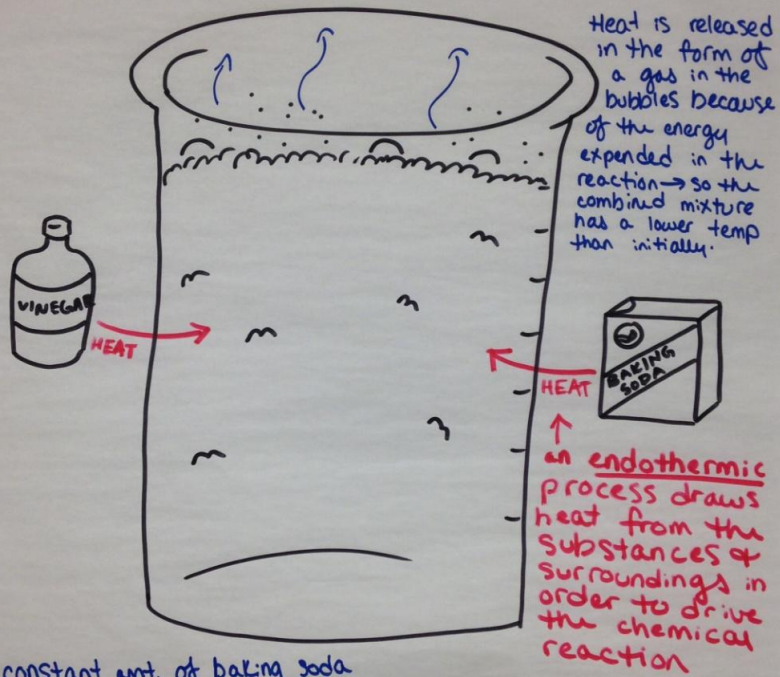 Heat is released
in the form of
a gas in the
bubbles because
of the energy
expended in the
reaction → so the
combined mixture
has a lower temp
than initially.
VINEGAR
HEAT
BAKING
SODA
HEAT
an endothermic
process draws
heat from the
substances &
surroundings in
order to drive
the chemical
reaction
constant amt. of baking soda